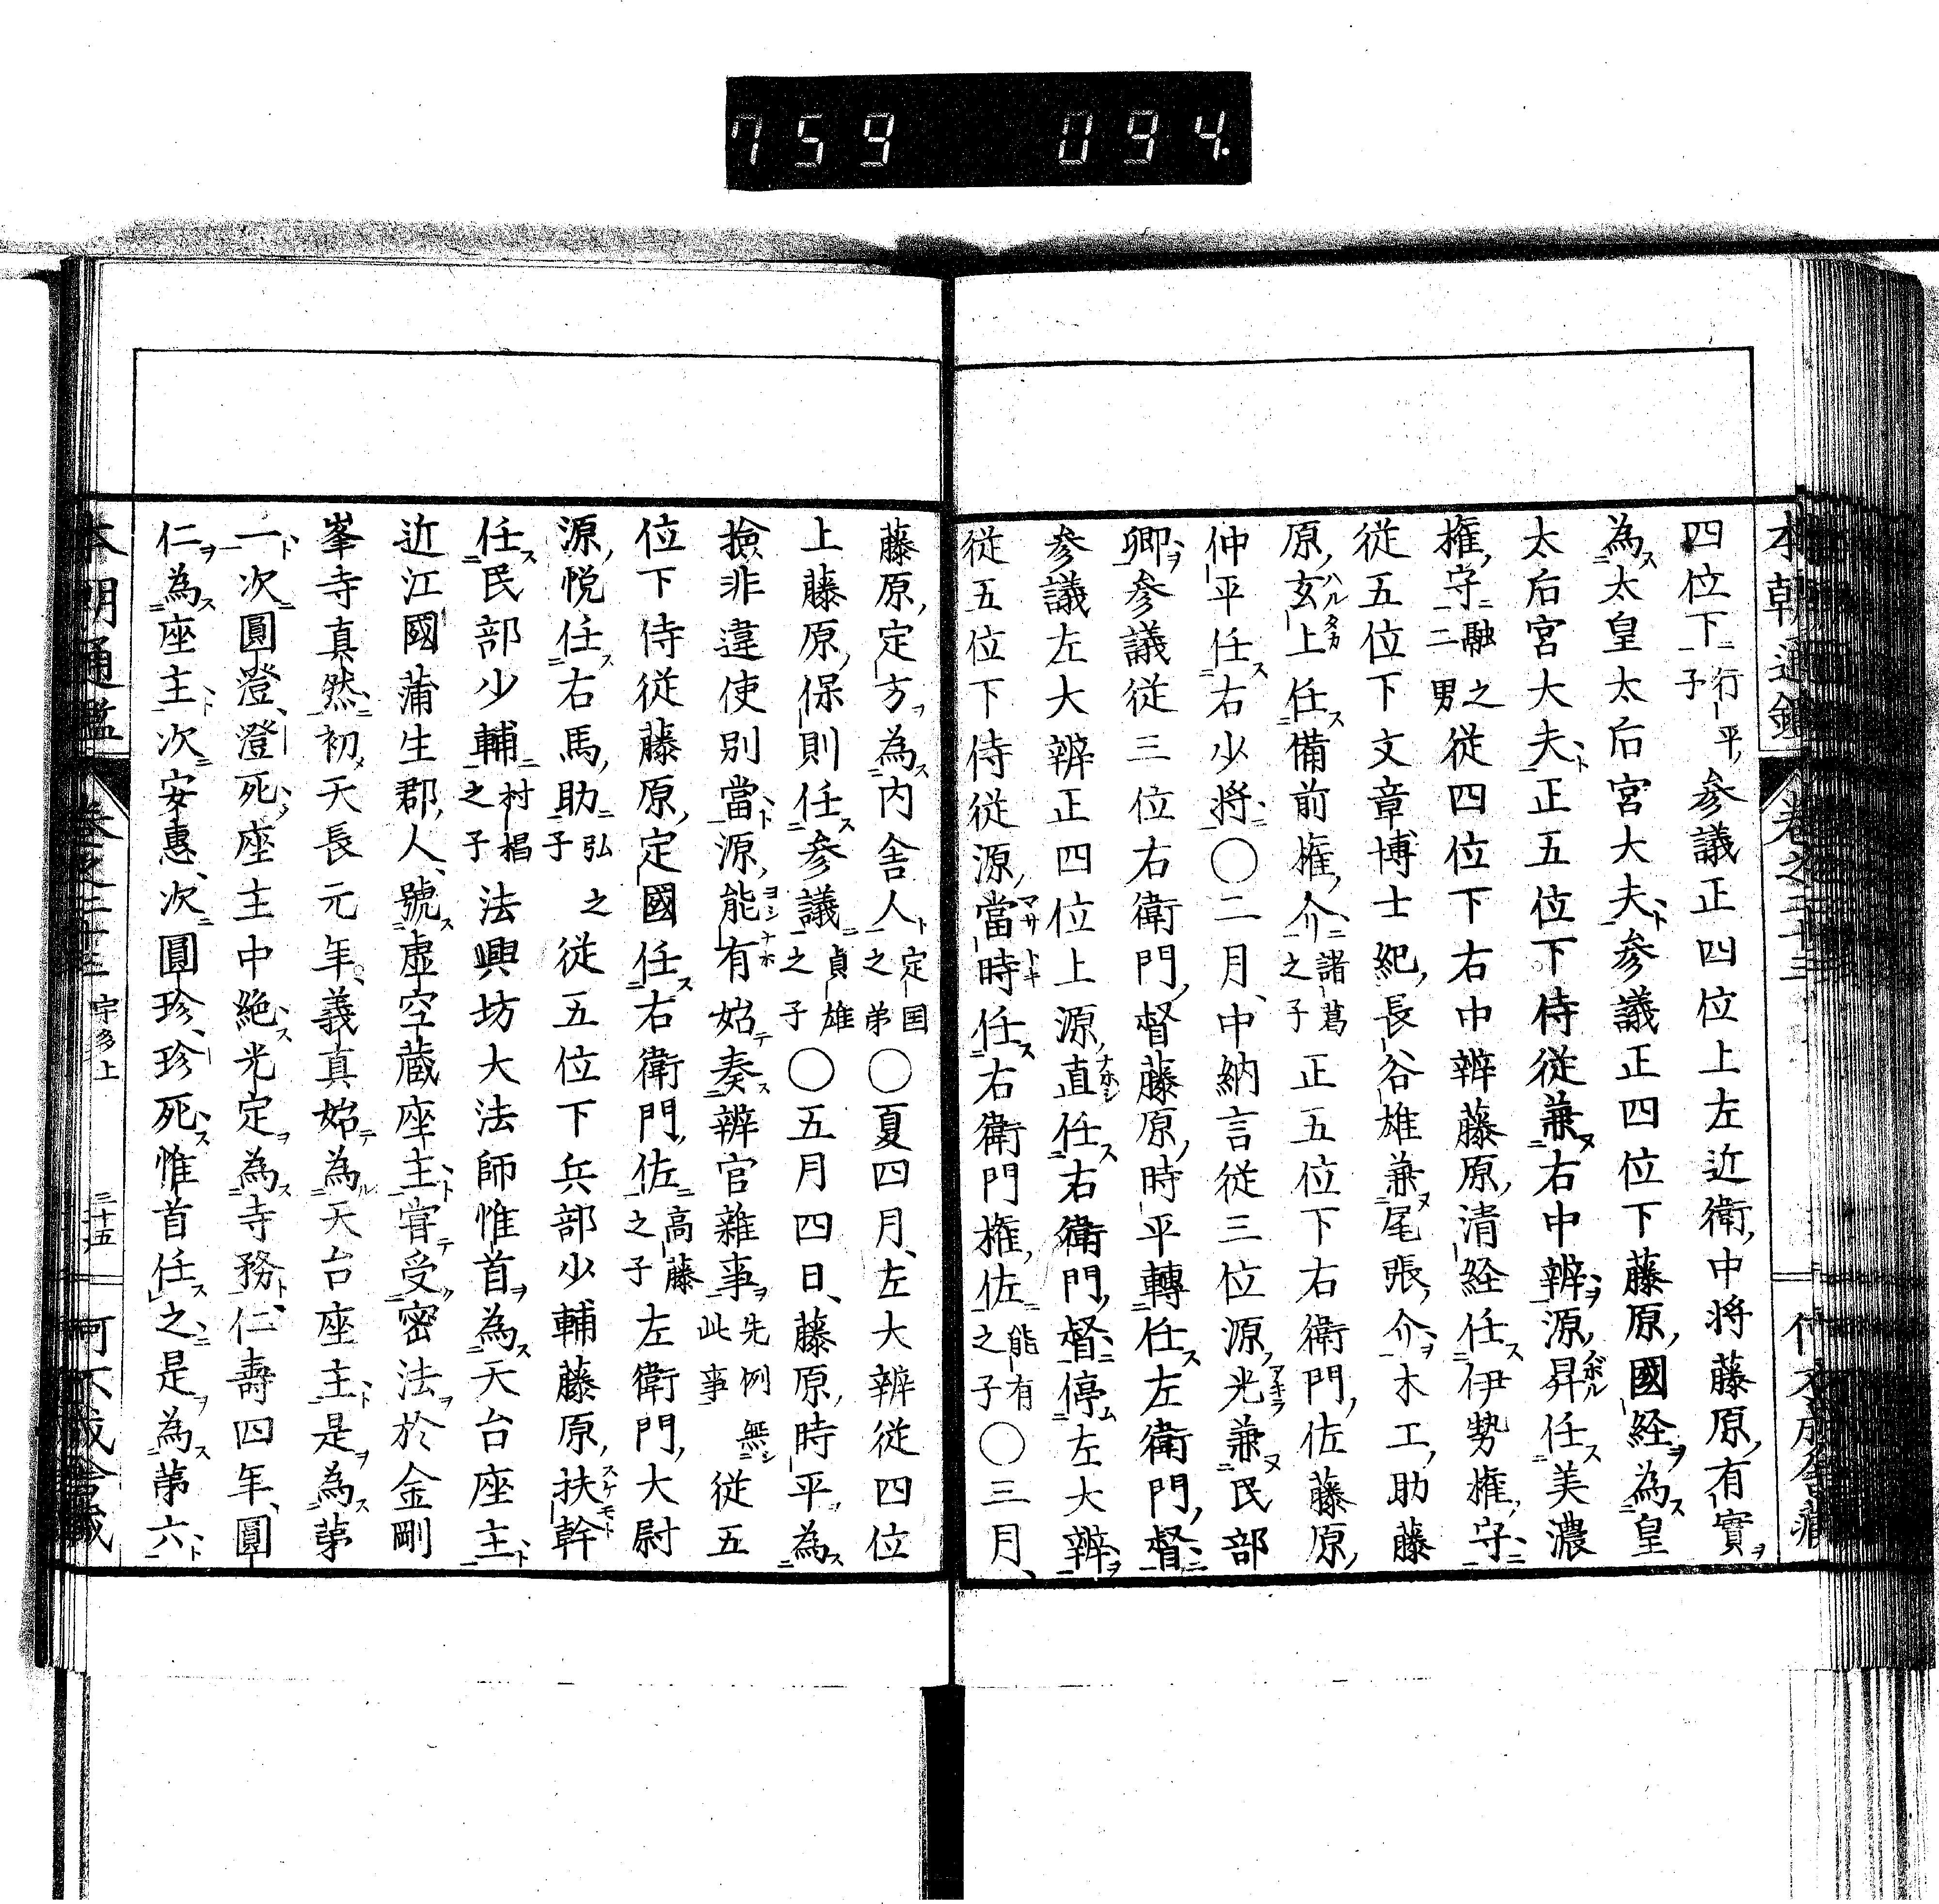 759 094.
本朝通鑑 卷之二十三
四位下行平子参議正四位上左近衛中将藤原有實
為太皇太后宮大夫参議正四位下藤原國経為皇
太后宮大夫正五位下侍従兼右中辨源昇任美濃
権守融之二男従四位下右中辨藤原清経任伊勢権守
従五位下文章博士紀長谷雄兼尾張介木工助藤
原玄上任備前権介諸葛之子正五位下右衛門佐藤原
仲平任右少将〇二月中納言従三位源光兼民部
卿参議従三位右衛門督藤原時平轉任左衛門督
参議左大辨正四位上源直任右衛門督停左大辨
従五位下侍従源當時任右衛門権佐能有之子〇三月
藤原定方為内舎人定国之弟〇夏四月左大辨従四位
上藤原保則任参議貞雄之子〇五月四日藤原時平為
撿非違使別當源能有始奏辨官雜事先例無此事従五
位下侍従藤原定國任右衛門佐高藤之子左衛門大尉
源悦任右馬助弘之子従五位下兵部少輔藤原扶幹
任民部少輔村椙之子法興坊大法師惟首為天台座主
近江國蒲生郡人號虚空蔵座主甞受密法於金剛
峯寺真然初天長元年義真始為天台座主是為苐
一次圓澄澄死座主中絶光定為寺務仁壽四年圓
仁為座主次安惠次圓珍珍死惟首任之是為苐六
本朝通鑑 卷之二十三 宇多上 三十五